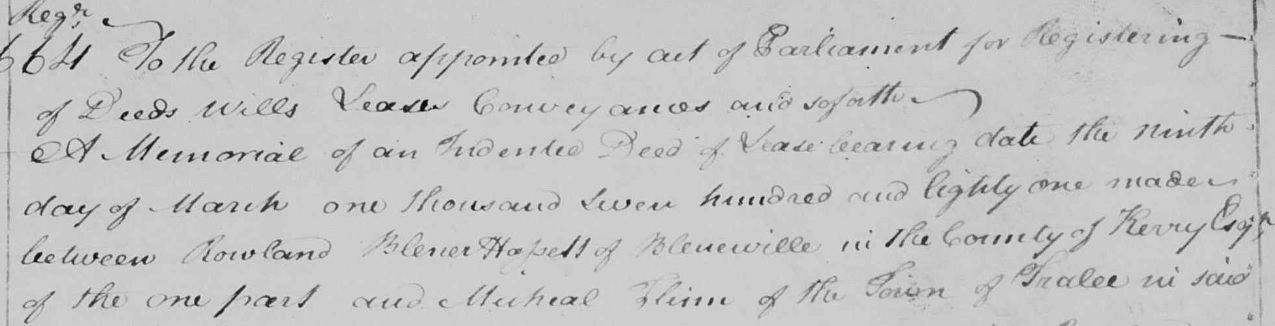 Regr
664 To the Register appointed by act of Parliament for Registering
of Deeds Wills Leases Conveyances and soforth
A Memorial of an Indented Deed of Lease bearing date the ninth
day of March one thousand seven hundred and Eighty one made
between Rowland BlenerHassett of Blenerville in the County of Kerry Esqr
of the one part and Micheal Flinn of the Town of Tralee in said